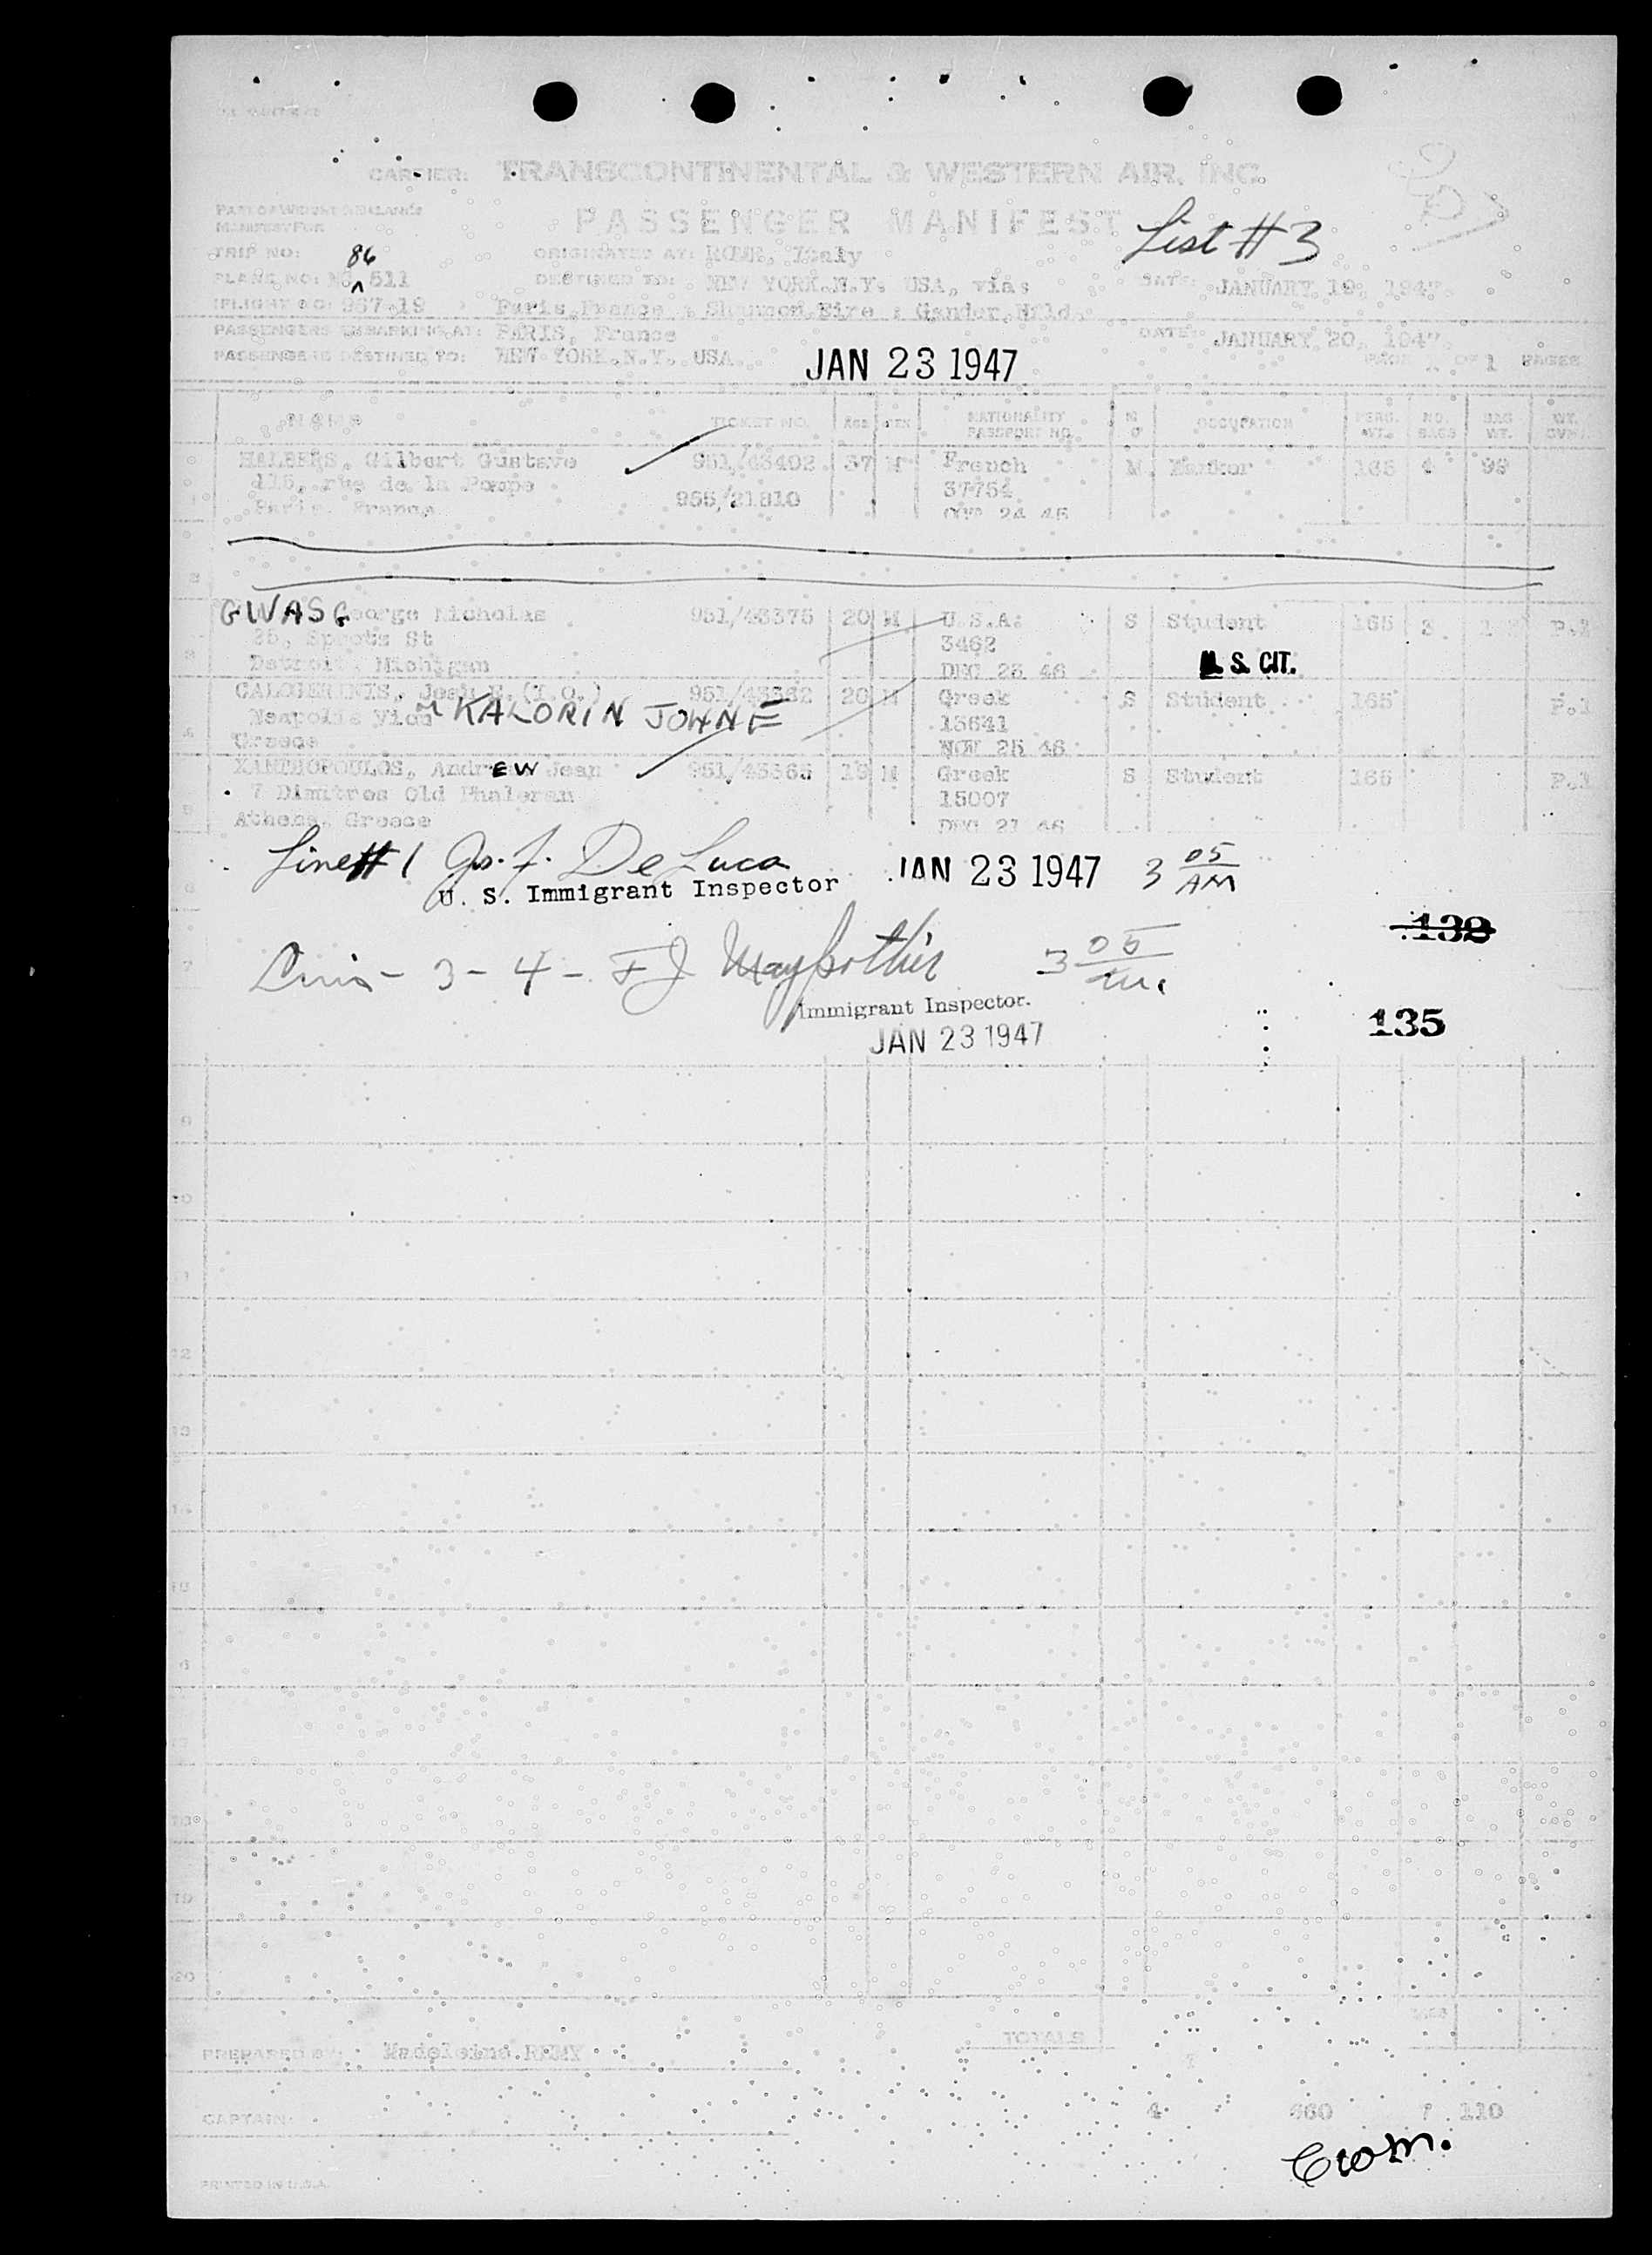 CARRIER: TRANSCONTINENTAL & WESTERN AIR, INC.
PASSENGER MANIFEST
List #3
PART OF WEIGHT & BALANCE
MANIFEST FOR
TRIP NO:
86
ORIGINATED AT: ROME, Italy
PLANE NO: NC 511
DESTINED TO: NEW YORK.N.Y. USA, via:
DATE: JANUARY 19, 1947.
FLIGHT NO: 967-19
Paris,France : Shannon,Eire : Gander,Nfld.
PASSENGERS EMBARKING AT: PARIS, France
DATE: JANUARY 20, 1947.
PASSENGERS DESTINED TO: NEW YORK.N.Y. USA.
JAN 23 1947
PAGE 1 OF 1 PAGES
NAME TICKET NO. AGE SEX NATIONALITY PASSPORT NO. M O OCCUPATION PERS. WT. NO. BAGS BAG WT. WT. OVER
HALBERS, Gilbert Gustave 951/43402 37 M French M Banker 165 4 99
116, rue de la Pompe 955/21810 37754
Paris, France OCT 24 45
GWASG George Nicholas 951/43375 20 M U.S.A. S Student 165 3 P.1
Sprots St 3462
Detroit. Michigan DEC 23 46 U. S. CIT.
CALOGERINIS, Jean E.(I.O.) 951/43362 20 M Greek S Student 165 P.1
Neapolis Viou KALORIN JOHN E 15641
Greece NOV 25 46
XANTHOPOULOS, Andrew Jean 951/43363 19 M Greek S Student 165 P.1
7 Dimitros Old Phaleran 15007
Athens, Greece DEC 21 46
Line #1 Jos. F. De Luca JAN 23 1947 3 05 AM
U. S. Immigrant Inspector
132
3 - 4 - F J 3 05 am.
Immigrant Inspector.
JAN 23 1947
135
9
10
11
12
13
14
15
16
17
18
19
20
TOTALS
PREPARED BY: Madeleine.REMY
CAPTAIN:
4 660 7 110
PRINTED IN U.S.A.